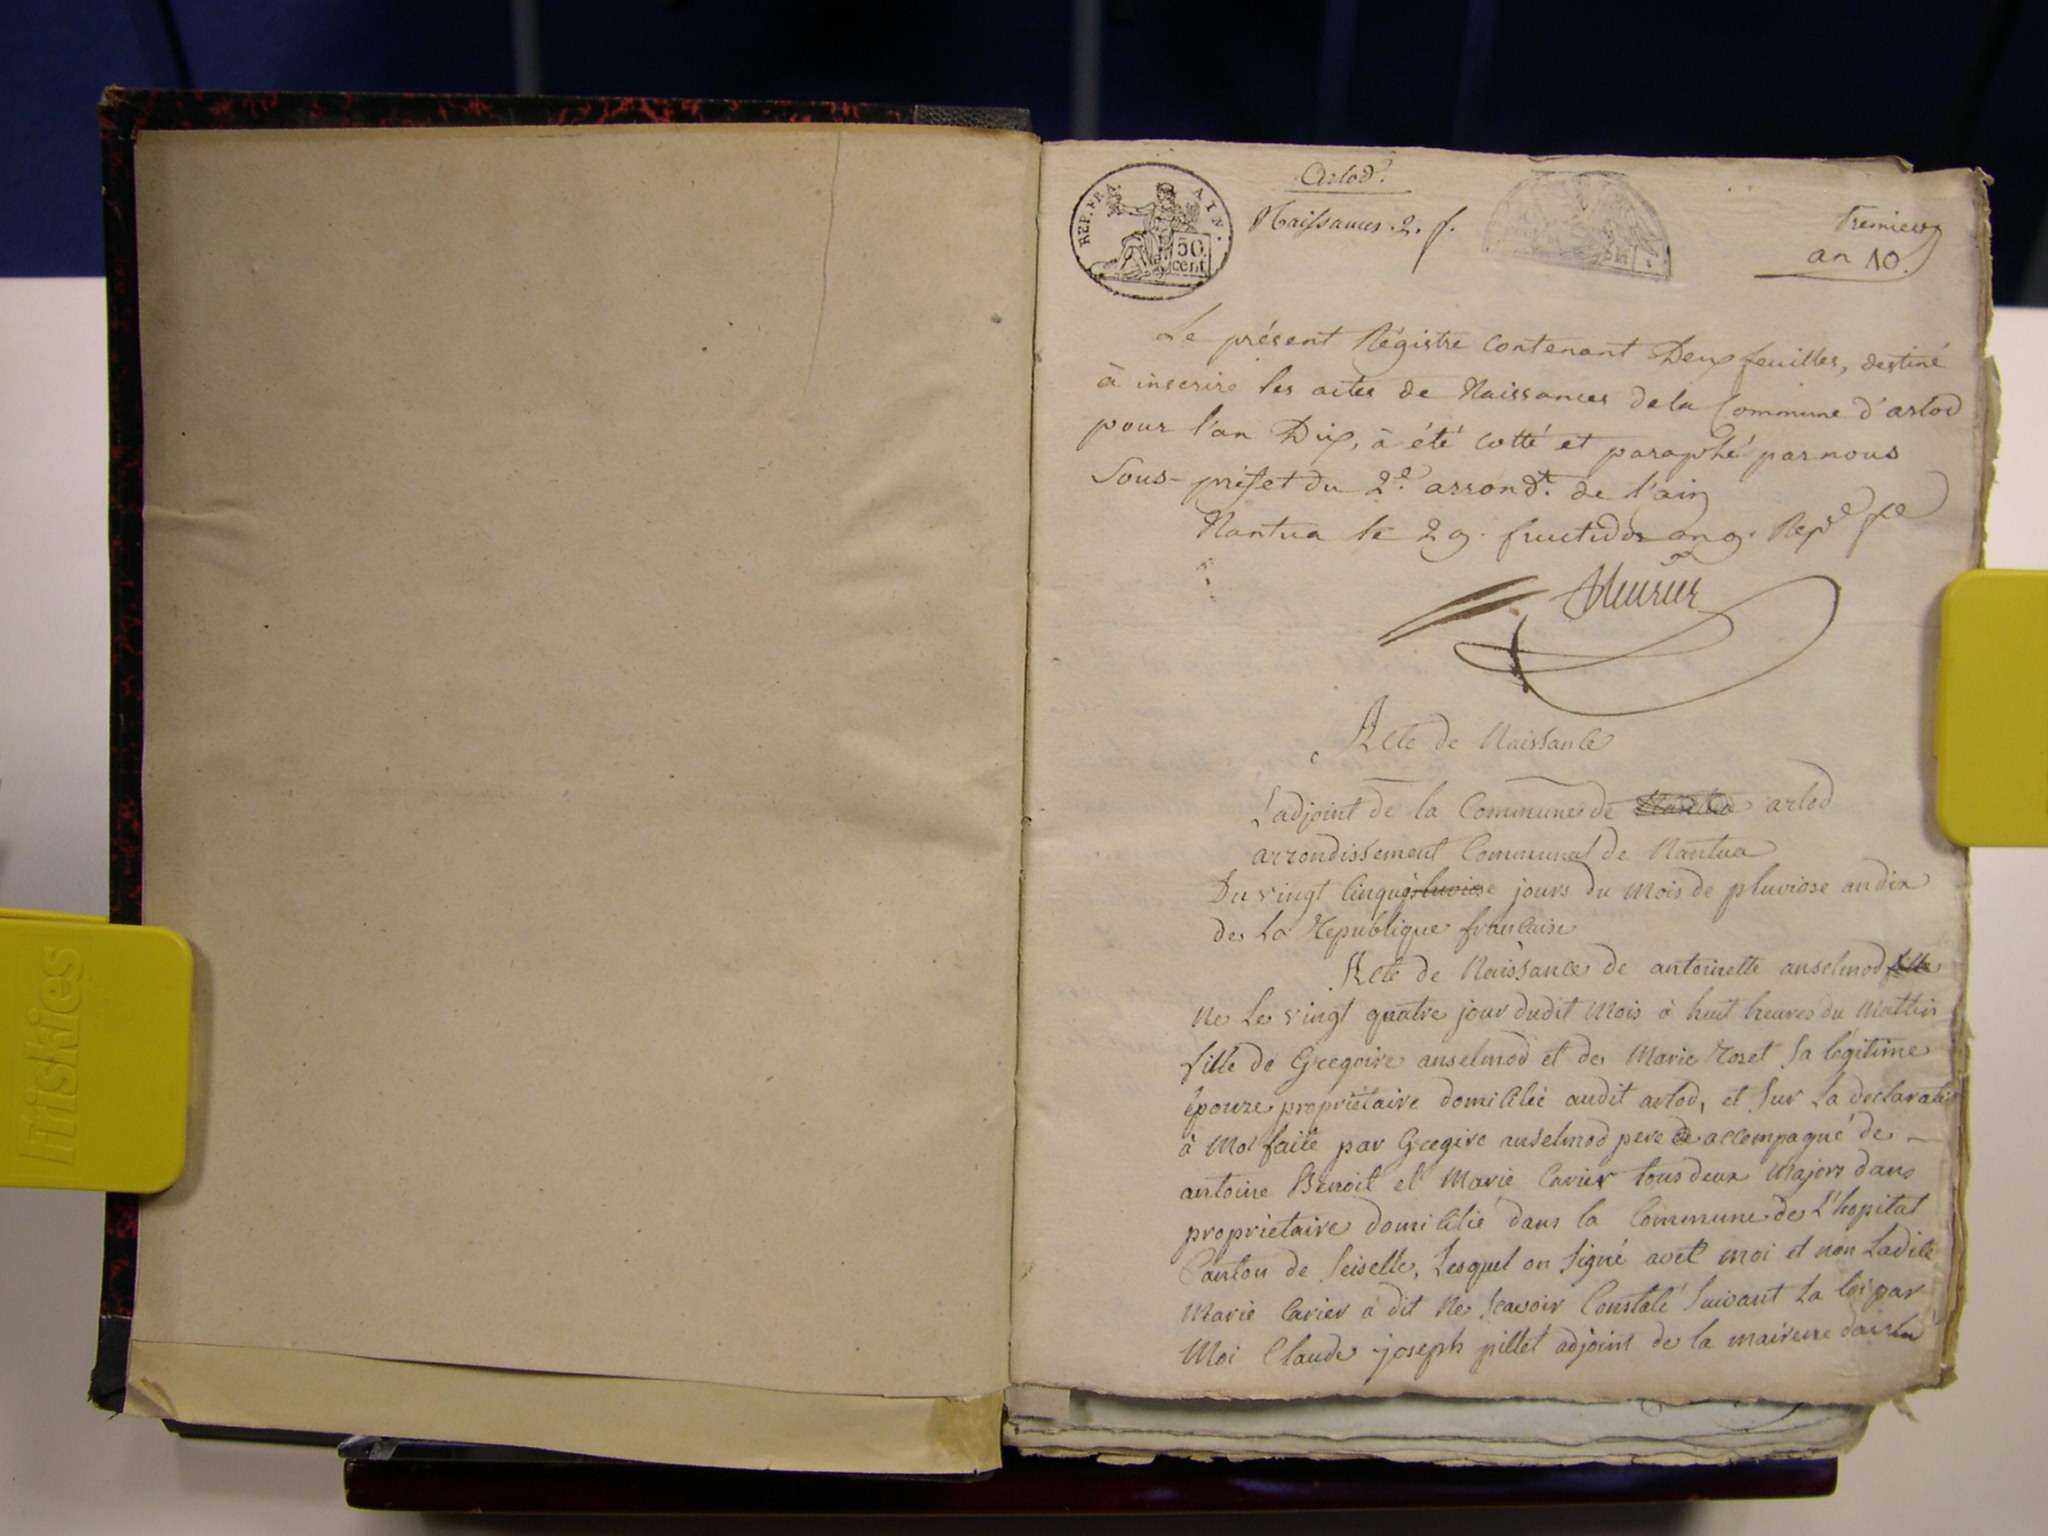 REP. FRA. AIN.
50 cent
Arlod.
Naissances. 2. f.
Premier
an 10.
Le présent Régistre contenant Deux feuilles, destiné
à inscrire les actes de Naissances de la Commune d'arlod
pour l'an Dix, à été cotté et paraphé par nous
Sous-préfet du 2e. arrondt. de l'ain
Nantua le 29. fructidor an 9. Repe fe
Acte de Naissance
L'adjoint de la Commune de arlod
arrondissement Communal de Nantua
Du vingt cinq pluviose jours du mois de pluviose an dix
de la Republique francaise
Acte de Naissance de antoinette anselmod fille
Ne le vingt quatre jour dudit mois à huit heures du mattin
fille de Gregoire anselmod et de Marie Rozet sa légitime
épouze propriétaire domicilié audit arlod, et sur la declaration
à moi faite par Gregire anselmod pere accompagné de
antoine Benoit et Marie Carier tous deux majors dans
proprietaire domicilié dans la Commune de L'hopital
Canton de Seiselle, Lesquel on signé avec moi et non Ladite
Marie Carier à dit Ne scavoir Constaté Suivant La loi par
Moi Claude joseph pillet adjoint de la mairerie
Friskies